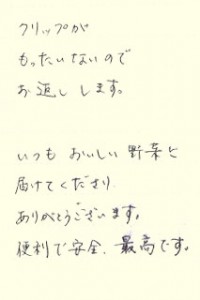 クリップが
もったいないので
お返しします。
いつもおいしい野菜を
届けてくださり
ありがとうございます。
便利で安全、最高です。